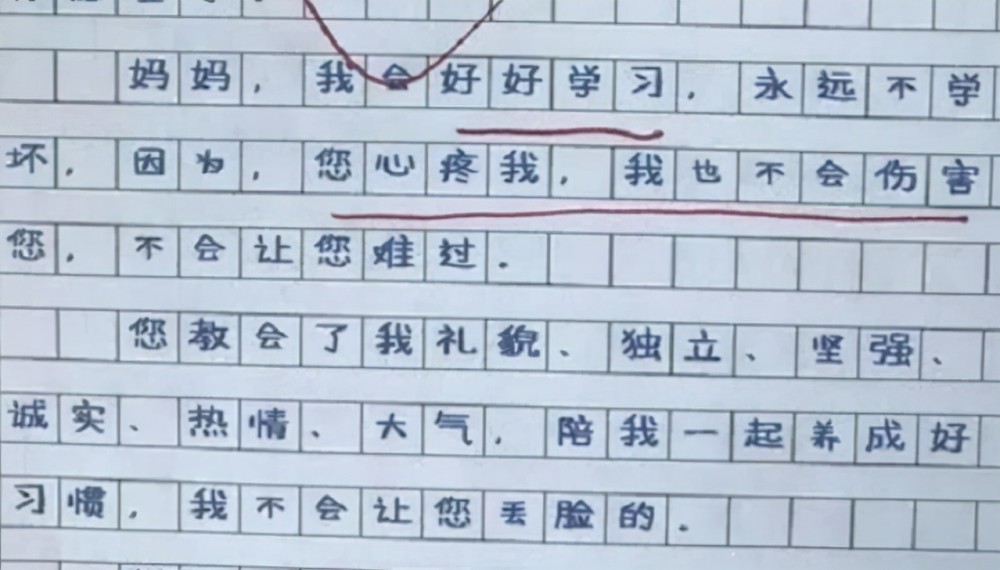 妈妈,我会好好学习,永远不学
坏,因为,您心疼我,我也不会伤害
您,不会让您难过.
您教会了我礼貌、独立、坚强、
诚实、热情、大气,陪我一起养成好
习惯,我不会让您丢脸的.